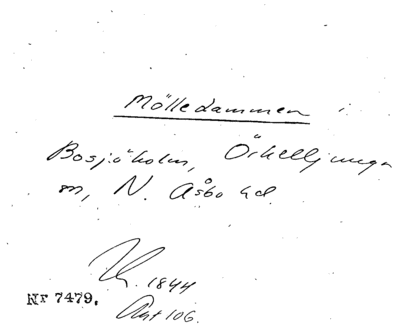 Mölledammen i
Bosjöholm, Örkelljunga
sn, N. Åsbo hd.
1844
Nr 7479.
Akt 106.